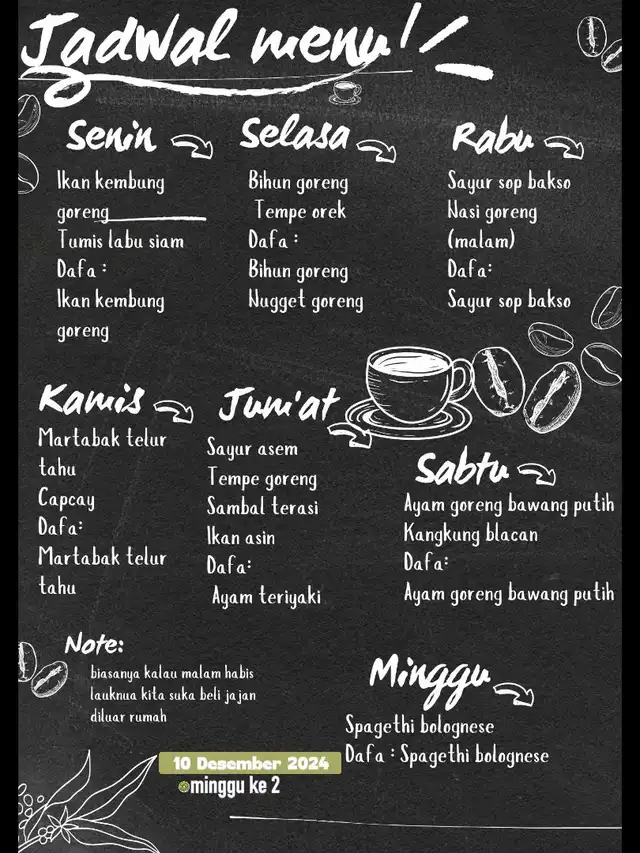 Jadwal menu!
Senin
Ikan kembung
goreng
Tumis labu siam
Dafa :
Ikan kembung
goreng
Selasa
Bihun goreng
Tempe orek
Dafa :
Bihun goreng
Nugget goreng
Rabu
Sayur sop bakso
Nasi goreng
(malam)
Dafa:
Sayur sop bakso
Kamis
Martabak telur
tahu
Capcay
Dafa:
Martabak telur
tahu
Jum'at
Sayur asem
Tempe goreng
Sambal terasi
Ikan asin
Dafa:
Ayam teriyaki
Sabtu
Ayam goreng bawang putih
Kangkung blacan
Dafa:
Ayam goreng bawang putih
Note:
biasanya kalau malam habis
lauknua kita suka beli jajan
diluar rumah
Minggu
Spagethi bolognese
Dafa : Spagethi bolognese
10 Desember 2024
minggu ke 2